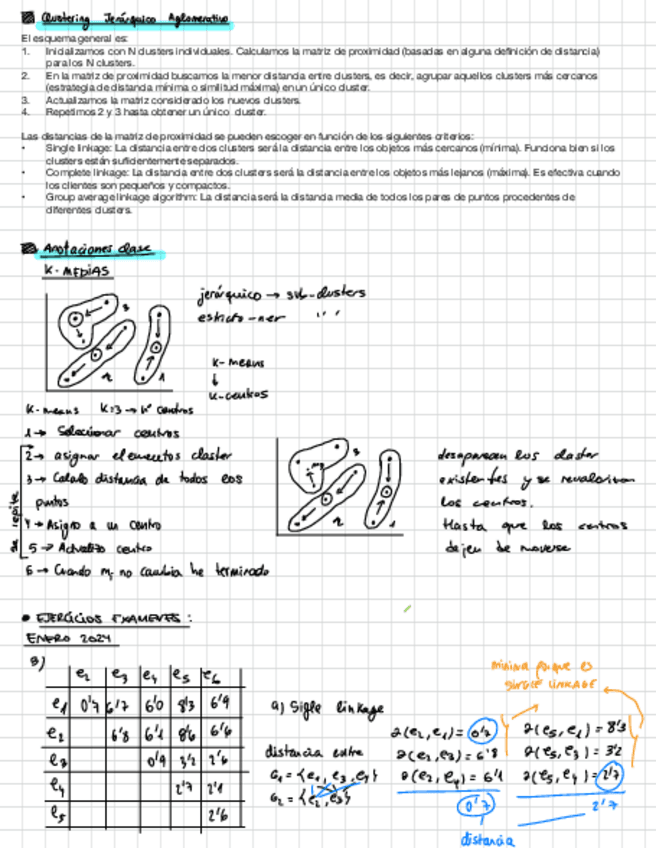 Clustering Jerárquico Aglomerativo
El esquema general es:
1. Inicializamos con N clusters individuales. Calculamos la matriz de proximidad (basadas en alguna definición de distancia)
para los N clusters.
2. En la matriz de proximidad buscamos la menor distancia entre clusters, es decir, agrupar aquellos clusters más cercanos
(estrategia de distancia mínima o similitud máxima) en un único cluster.
3. Actualizamos la matriz considerado los nuevos clusters.
4. Repetimos 2 y 3 hasta obtener un único cluster.
Las distancias de la matriz de proximidad se pueden escoger en función de los siguientes criterios:
• Single linkage: La distancia entre dos clusters será la distancia entre los objetos más cercanos (mínima). Funciona bien si los
clusters están suficientemente separados.
• Complete linkage: La distancia entre dos clusters será la distancia entre los objetos más lejanos (máxima). Es efectiva cuando
los clientes son pequeños y compactos.
• Group average linkage algorithm: La distancia será la distancia media de todos los pares de puntos procedentes de
diferentes clusters.
Anotaciones clase
K-MEDIAS
jerárquico → sub-clusters
3
2
1
K-means
↓
K-centros
K-means K=3 → nº centros
1→ Seleccionar centros
2→ asignar elementos claster
3→ Calculo distancia de todos los
puntos
4→ Asigno a un centro
5→ Actualizo centro
se repite
6→ Cuando m; no cambia he terminado
3
2
1
desaparecen los claster
existentes y se
los centros.
Hasta que los centros
dejen de moverse
• EJERCICIOS EXAMENES:
ENERO 2024
3)
e2 e3 e4 e5 e6
e1 0'7 6'7 6'0 8'3 6'9
e2 6'8 6'1 8'6 6'6
e3 0'9 3'2 2'6
e4 2'7 2'1
e5 2'6
a) Sigle linkage
distancia entre
G1 = {e1, e3, e4}
G2 = {e2, e5}
mínima porque es
SINGLE LINKAGE
d(e2, e1) = 0'7
d(e2, e3) = 6'8
d(e2, e4) = 6'1
0'7
distancia
d(e5, e1) = 8'3
d(e5, e3) = 3'2
d(e5, e4) = 2'7
2'7